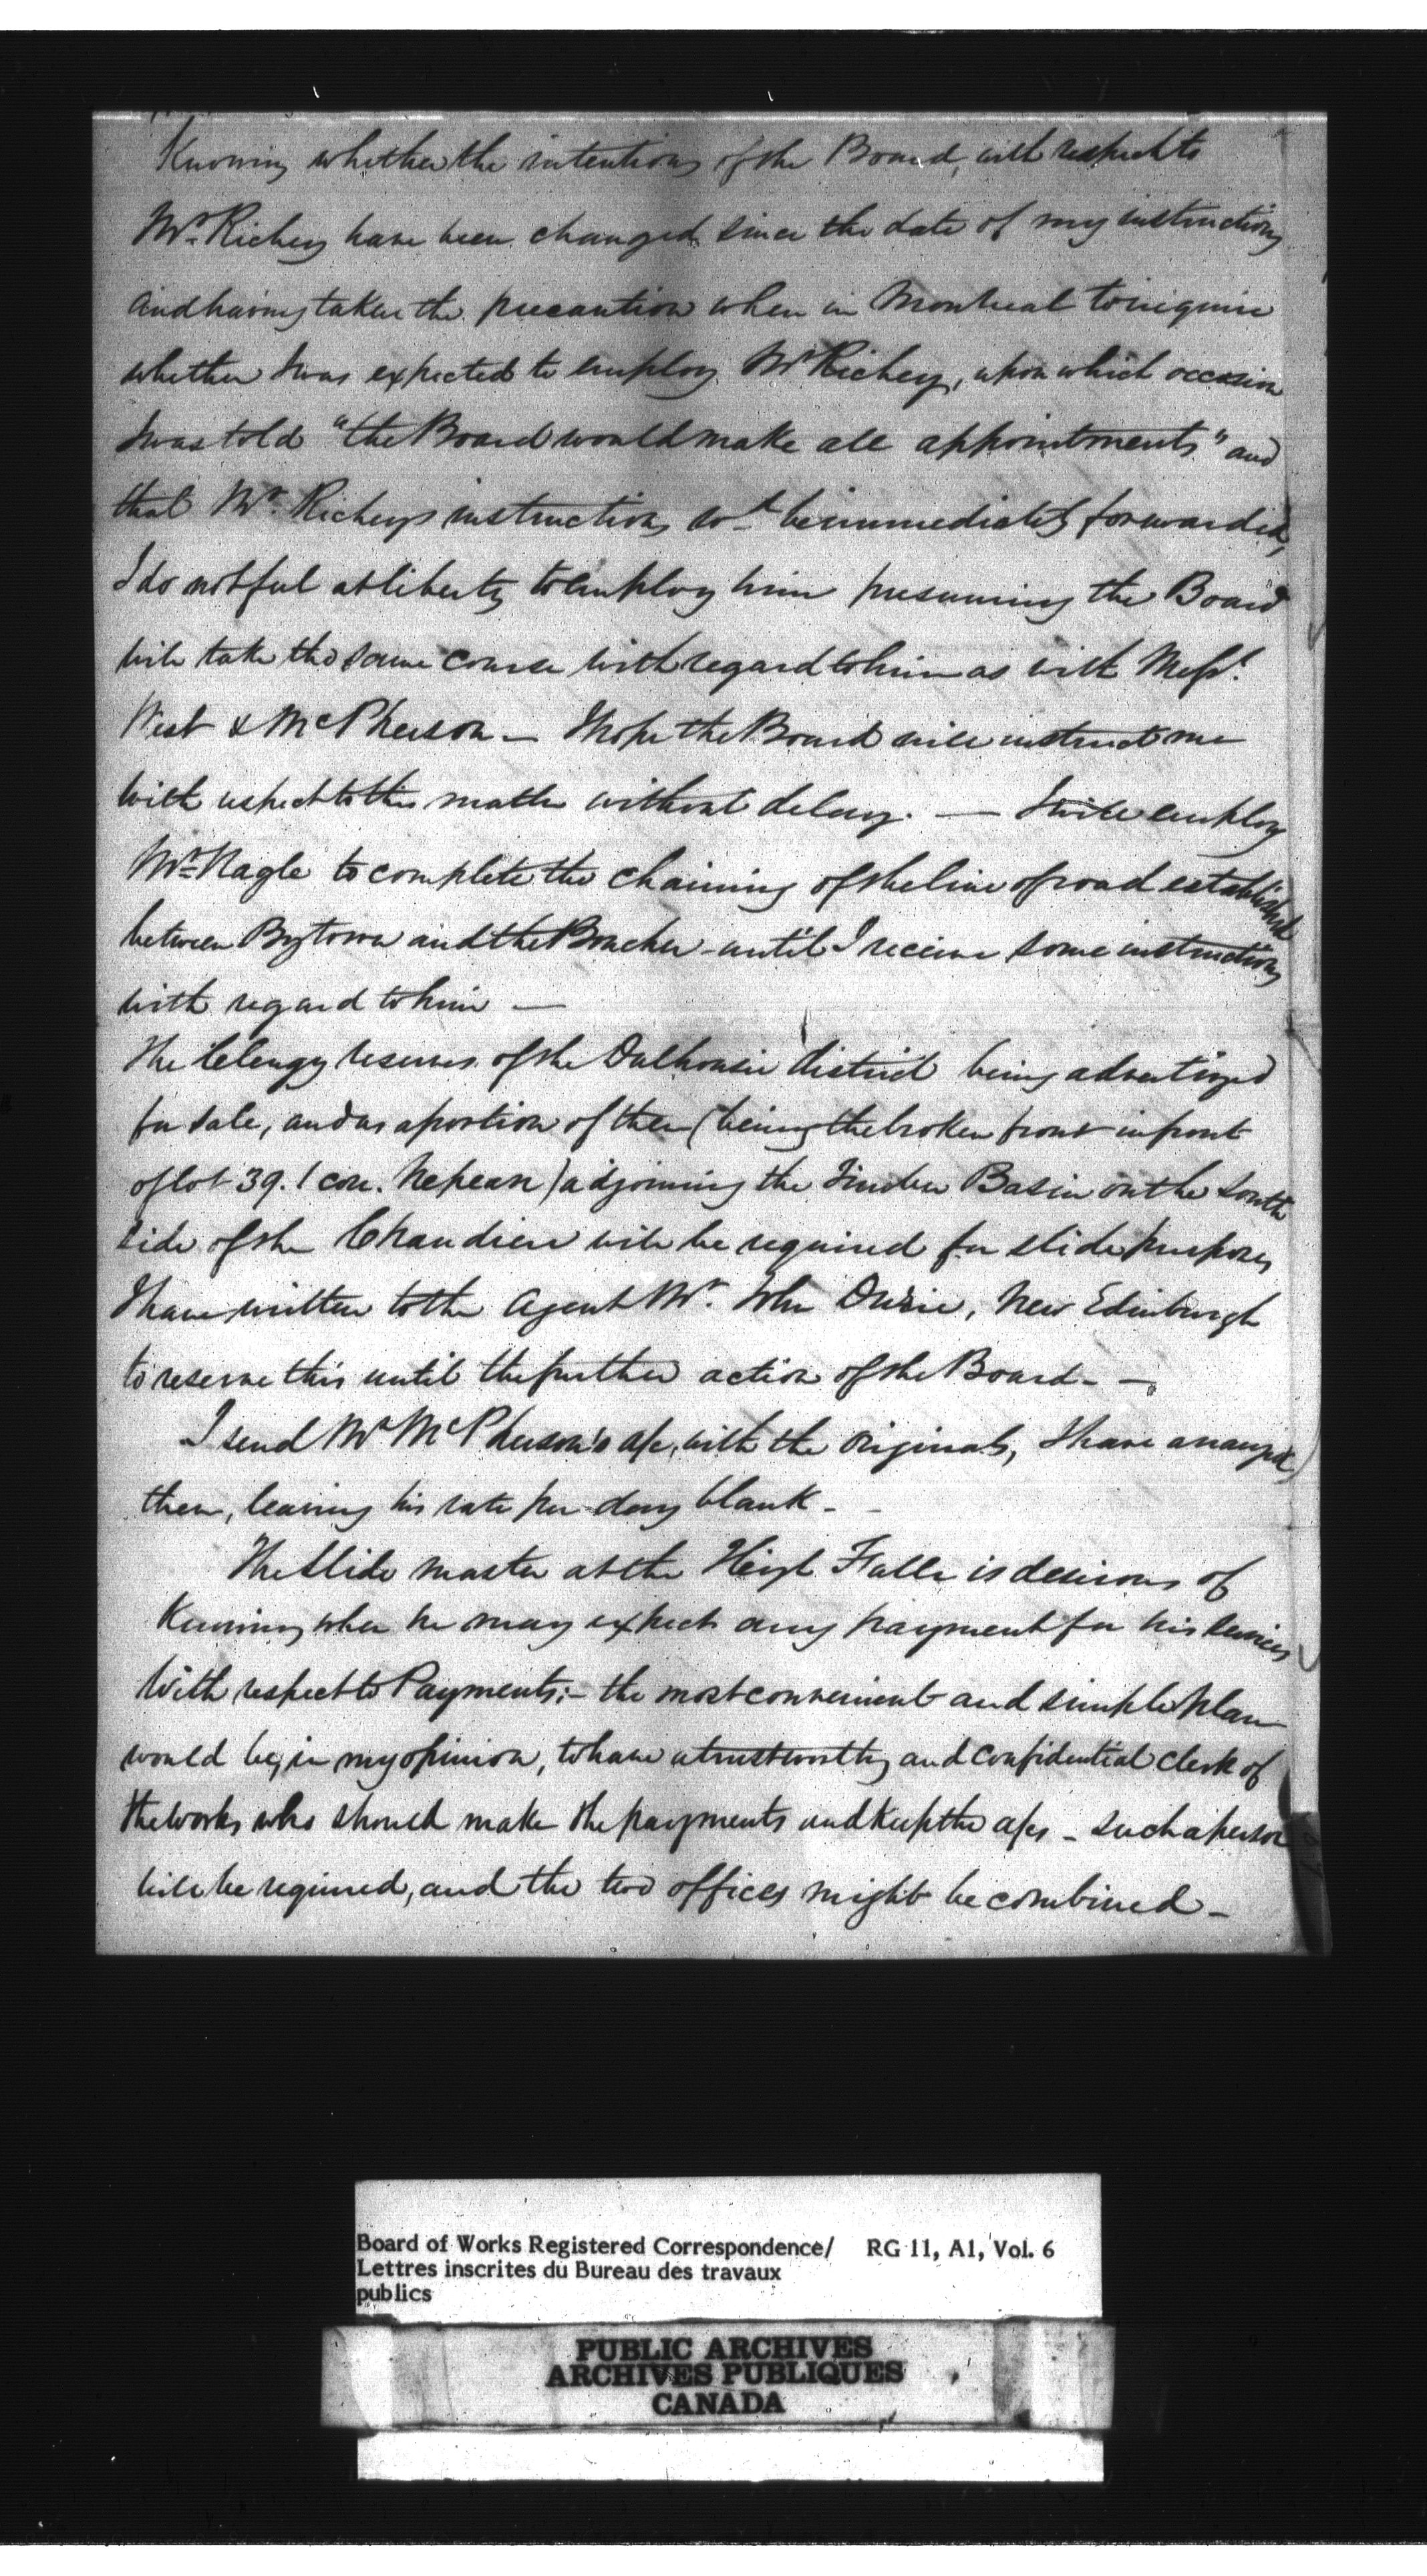 Knowing whether the intentions of the Board, with respect to
Mr Richey have been changed since the date of my instructions
and having taken the precaution when in Montreal to inquire
whether I was expected to employ Mr Richey, upon which occasion
I was told "the Board would make all appointments" and
that Mr. Richeys instructions wd be immediately forwarded,
I do not feel at liberty to employ him presuming the Board
will take the same course with regard to him as with Messrs
West & McPherson — I hope the Board will instruct me
with respect to this matter without delay. — I will employ
Mr Nagle to complete the chaining of the line of road established
between Bytown and the Bonchere - until I receive some instructions
with regard to him —
The Clergy reserves of the Dalhousie district being advertized
for sale, and as a portion of them (being the broken front in front
of lot 39. 1 con. Nepean) adjoining the Timber Basin on the south
side of the Chaudiere will be required for slide purposes
I have written to the Agent Mr. John Durie, New Edinburgh
to reserve this until the further action of the Board - —
I send Mr McPherson's a/c, with the originals, I have arranged
them, leaving his rate per day blank -
The Slide master at the High Falls is desirous of
Knowing when he may expect any payment for his services
With respect to Payments;- the most convenient and simple plan
would be, in my opinion, to have a trustworthy and confidential clerk of
the works who should make the payments and keep the a/cs - such a person
will be required, and the two offices might be combined -
Board of Works Registered Correspondence/ RG 11, A1, Vol. 6
Lettres inscrites du Bureau des travaux
publics
PUBLIC ARCHIVES
ARCHIVES PUBLIQUES
CANADA